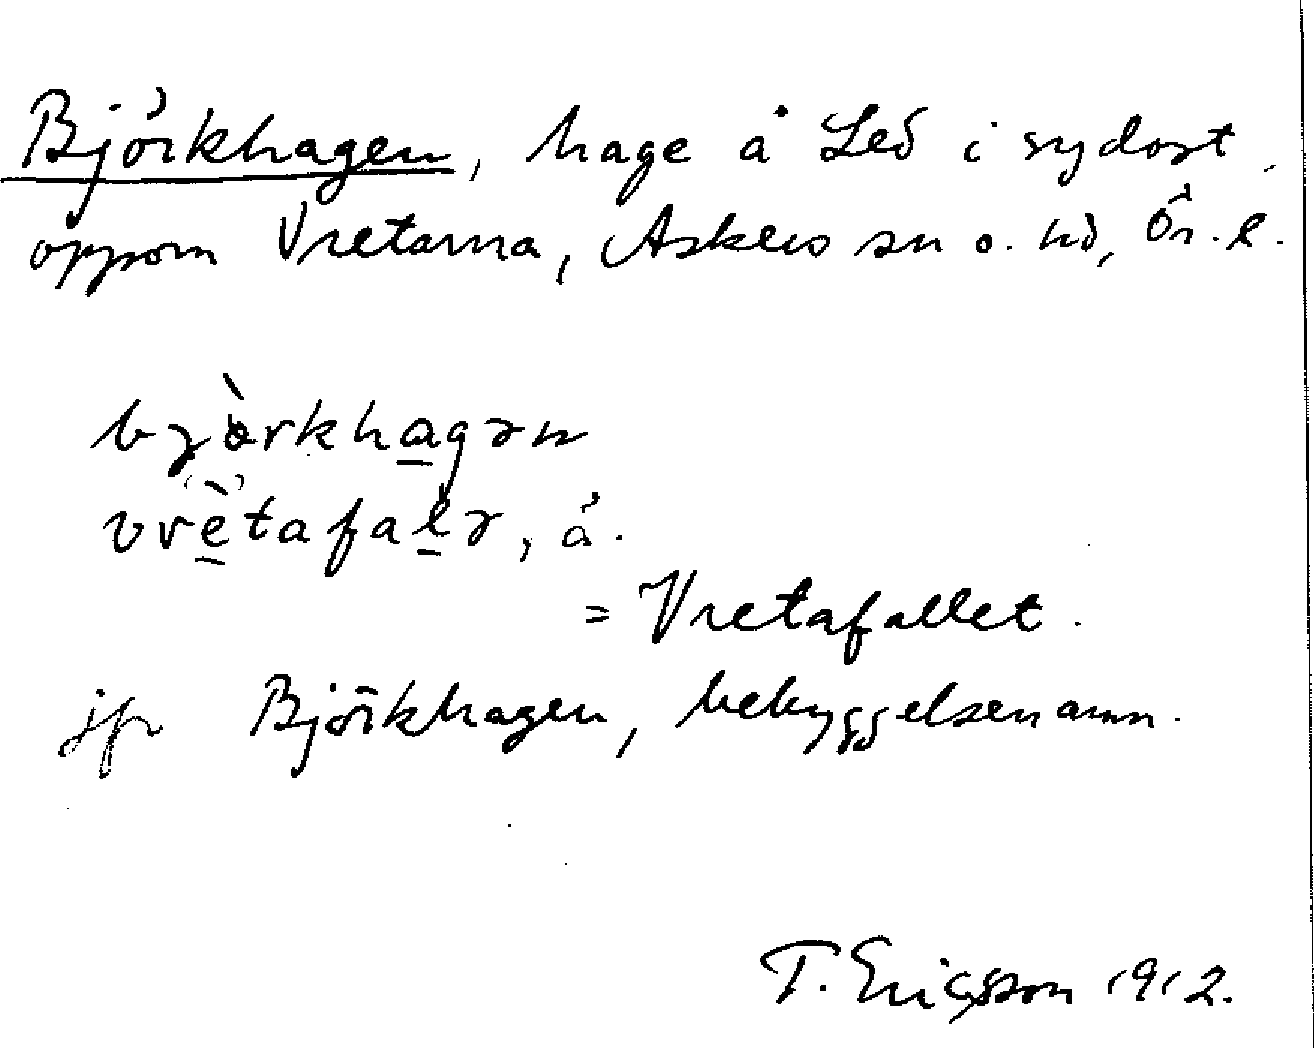 Björkhagen, hage å Led i sydost
oppom Vretarna, Askers sn o. hd, Ör. l.
bjòrkhagən
vrètafalə, å.
= Vretafallet.
jfr Björkhagen, bebyggelsenamn.
T. Ericsson 1912.